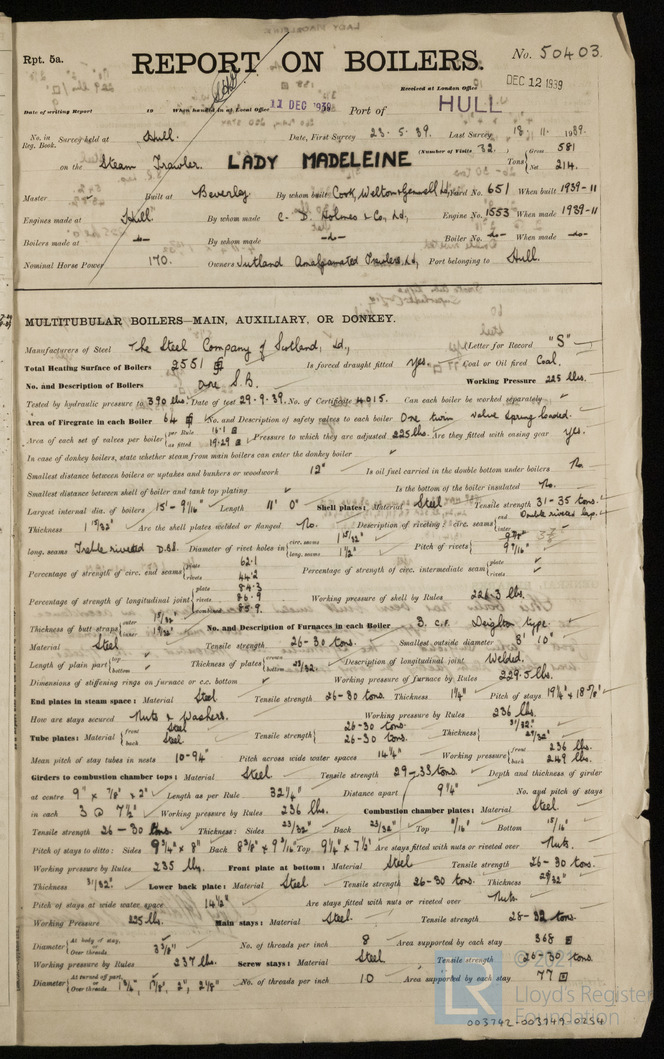 Rpt. 5a.
REPORT ON BOILERS.
No. 50403
Received at London Office
DEC 12 1939
Date of writing Report 19 When handed in at Local Office 11 DEC 1939 Port of HULL
No. in Reg. Book. Survey held at Hull. Date, First Survey 23.5.39. Last Survey 18.11.1939.
(Number of Visits 32.)
on the Steam Trawler. LADY MADELEINE Tons Gross 581 Net 214.
Master Built at Beverley By whom built Cook, Welton & Gemmell Ld, Yard No. 651 When built 1939-11
Engines made at Hull By whom made C. D. Holmes & Co, Ld, Engine No. 1553 When made 1939-11
Boilers made at -do- By whom made -do- Boiler No. -do- When made -do-
Nominal Horse Power 170. Owners Jutland Amalgamated Trawlers, Ld, Port belonging to Hull.
MULTITUBULAR BOILERS—MAIN, AUXILIARY, OR DONKEY.
Manufacturers of Steel The Steel Company of Scotland, Ld, Letter for Record "S"
Total Heating Surface of Boilers 2551 Is forced draught fitted yes. Coal or Oil fired Coal.
No. and Description of Boilers One S.B. Working Pressure 225 lbs.
Tested by hydraulic pressure to 390 lbs. Date of test 29.9.39. No. of Certificate 4015. Can each boiler be worked separately
Area of Firegrate in each Boiler 64 No. and Description of safety valves to each boiler One twin valve Spring loaded.
Area of each set of valves per boiler per Rule 16.1 as fitted 19.29 Pressure to which they are adjusted 225 lbs. Are they fitted with easing gear Yes.
In case of donkey boilers, state whether steam from main boilers can enter the donkey boiler
Smallest distance between boilers or uptakes and bunkers or woodwork 12" Is oil fuel carried in the double bottom under boilers No.
Smallest distance between shell of boiler and tank top plating Is the bottom of the boiler insulated No.
Largest internal dia. of boilers 15'- 9 1/16" Length 11' 0" Shell plates: Material Steel Tensile strength 31-35 tons.
Thickness 1 15/32" Are the shell plates welded or flanged No. Description of riveting: circ. seams end Double riveted lap. inter
long. seams Treble riveted D.B.S. Diameter of rivet holes in circ. seams 1 15/32" long. seams 1 1/2" Pitch of rivets 9 7/16"
Percentage of strength of circ. end seams plate 62.1 rivets 44.2 Percentage of strength of circ. intermediate seam plate rivets
Percentage of strength of longitudinal joint plate 84.3 rivets 86.9 combined 85.9 Working pressure of shell by Rules 226.3 lbs.
Thickness of butt straps outer inner No. and Description of Furnaces in each Boiler 3. c.f. Deighton type.
Material Steel Tensile strength 26-30 tons. Smallest outside diameter 3' 10"
Length of plain part top bottom Thickness of plates crown bottom 23/32" Description of longitudinal joint Welded.
Dimensions of stiffening rings on furnace or c.c. bottom Working pressure of furnace by Rules 229.5 lbs.
End plates in steam space: Material Steel Tensile strength 26-30 tons. Thickness 1 1/4" Pitch of stays 19 1/4 × 18 7/8"
How are stays secured Nuts & Washers. Working pressure by Rules 236 lbs.
Tube plates: Material front Steel back Steel Tensile strength 26-30 tons. 26-30 tons. Thickness 31/32" 27/32"
Mean pitch of stay tubes in nests 10-94" Pitch across wide water spaces 14 1/4" Working pressure front 236 lbs. back 249 lbs.
Girders to combustion chamber tops: Material Steel Tensile strength 29-33 tons. Depth and thickness of girder
at centre 9" × 7/8" × 2" Length as per Rule 32 1/4" Distance apart 9 1/4" No. and pitch of stays
in each 3 @ 7 1/2" Working pressure by Rules 236 lbs. Combustion chamber plates: Material Steel
Tensile strength 26-30 tons. Thickness: Sides 23/32" Back 23/32" Top Bottom 15/16"
Pitch of stays to ditto: Sides 9 3/4" × 8" Back 8 3/8" × 9 3/16" Top 9 1/4" × 7 1/2" Are stays fitted with nuts or riveted over Nuts.
Working pressure by Rules 235 lbs. Front plate at bottom: Material Steel Tensile strength 26-30 tons.
Thickness 31/32" Lower back plate: Material Steel Tensile strength 26-30 tons. Thickness
Pitch of stays at wide water space 14 1/2" Are stays fitted with nuts or riveted over Nuts.
Working Pressure Main stays: Material Steel. Tensile strength 28-32 tons.
Diameter At body of stay, or Over threads 3 3/8" No. of threads per inch 8 Area supported by each stay 368
Working pressure by Rules 237 lbs. Screw stays: Material Steel Tensile strength 26-30 tons.
Diameter At turned off part, or Over threads 1 3/4", 1 7/8", 2", 2 1/8" No. of threads per inch 10 Area supported by each stay 77
LR
© 2021
Lloyd's Register
Foundation
003742-003749-0254